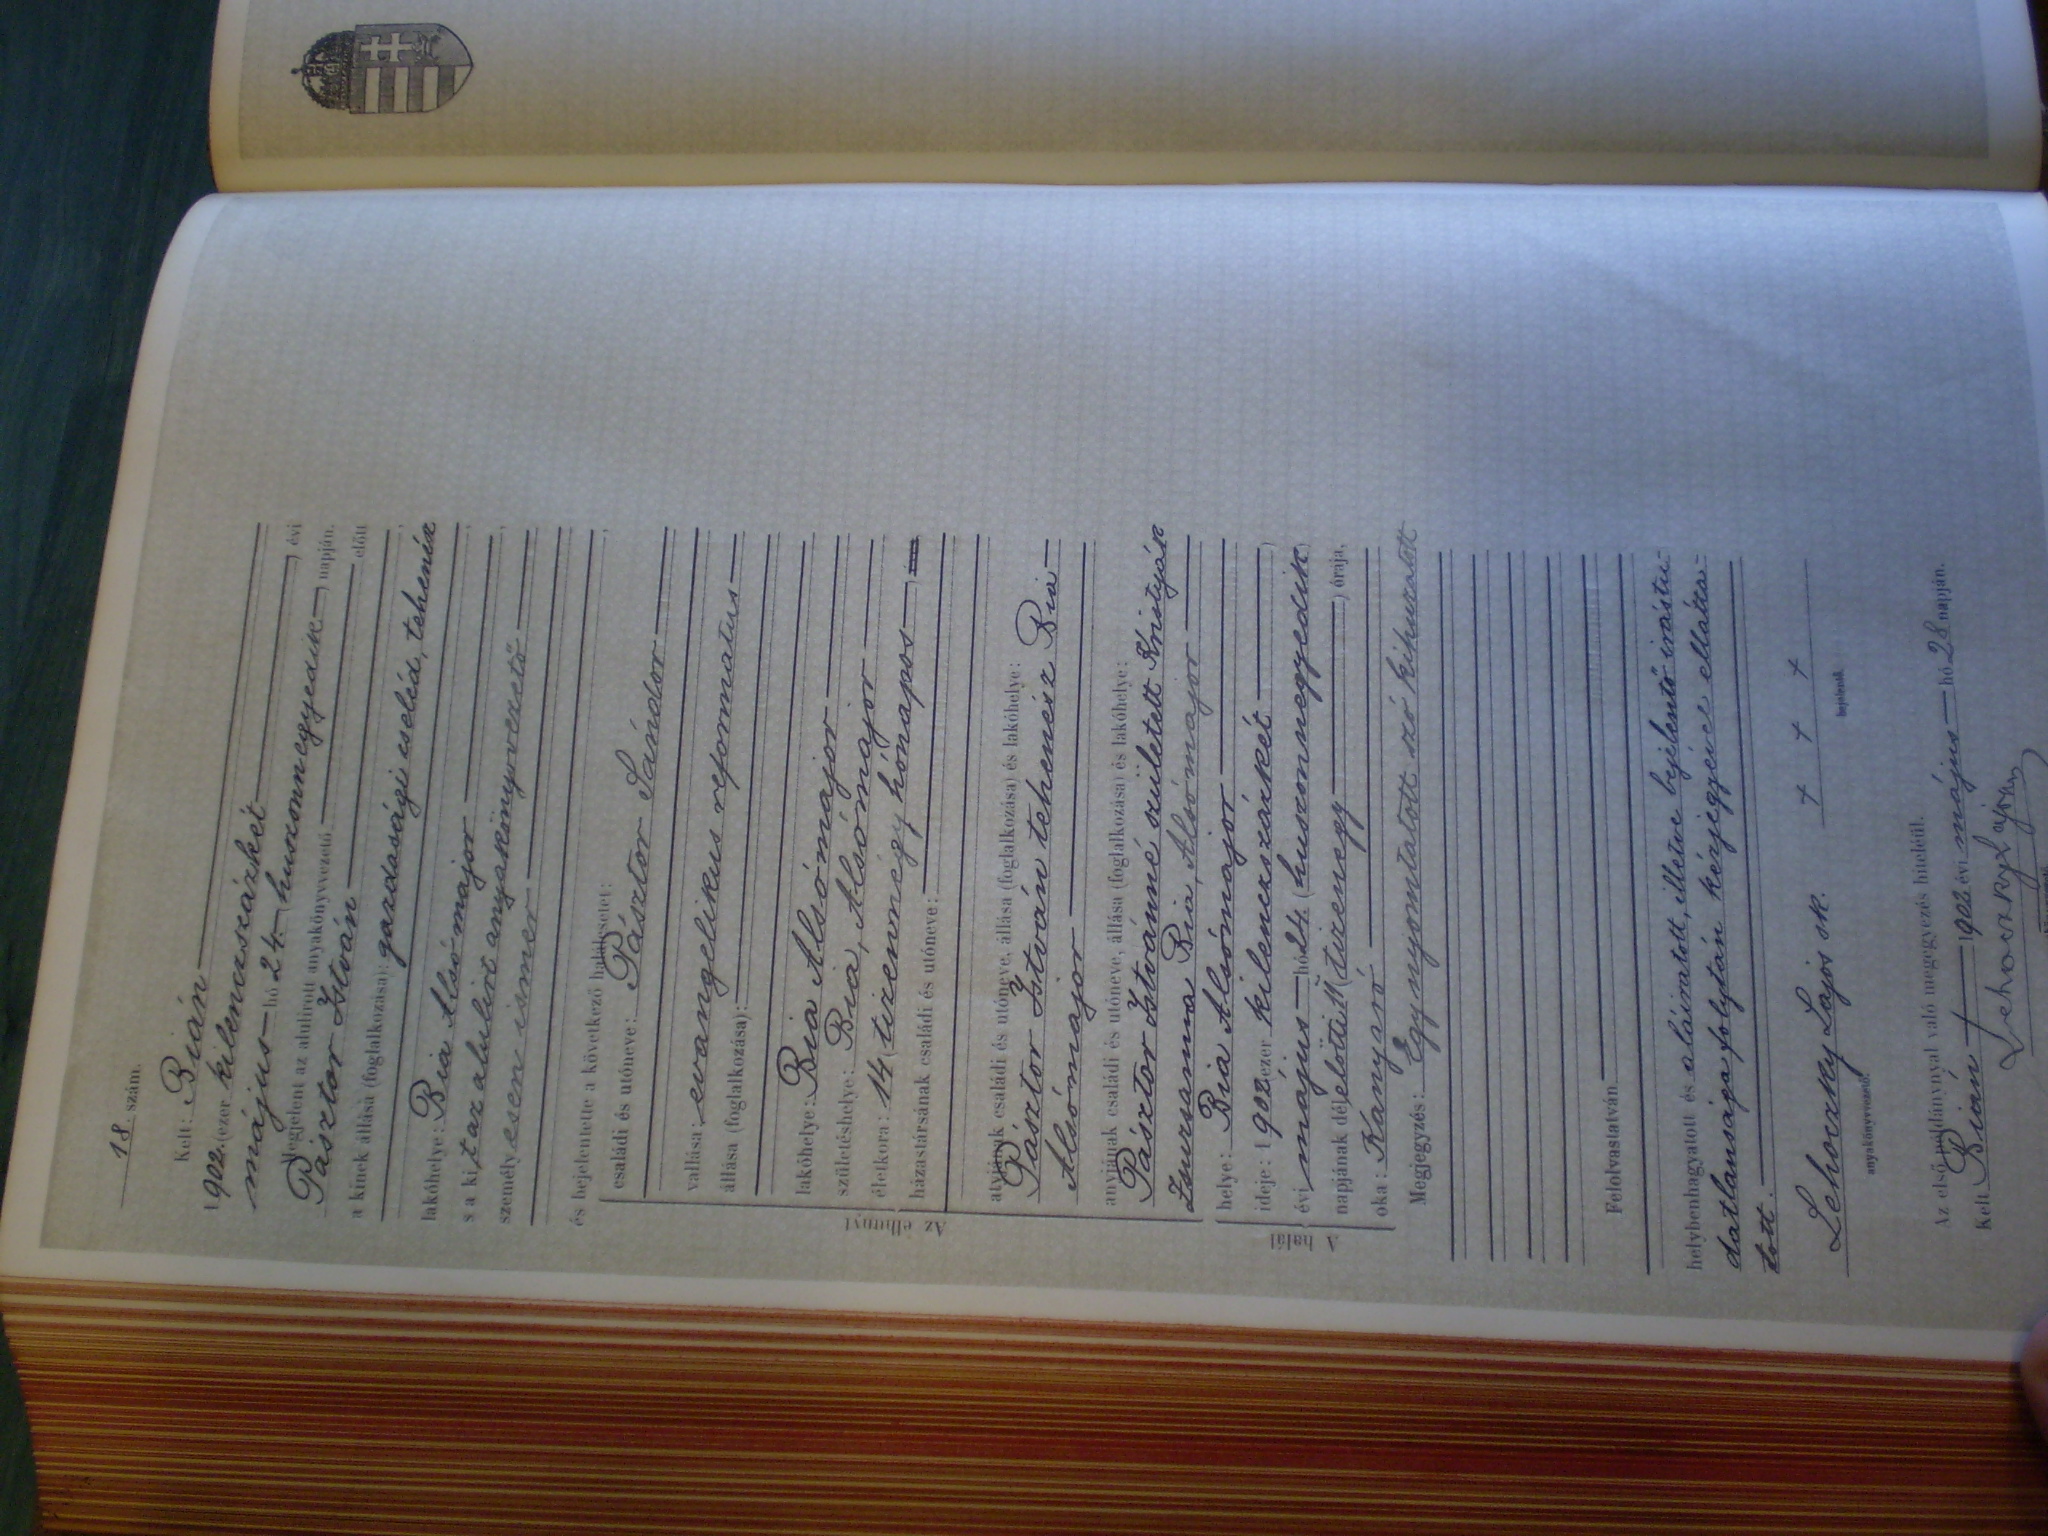 18. szám.
Kelt: Bián
1902. (ezer kilenczszázkét
) évi
május hó 24. (huszonnegyedik) napján.
Megjelent az alulírott anyakönyvvezető előtt
Pásztor István
a kinek állása (foglalkozása): gazdasági cseléd, tehenész,
lakóhelye: Bia Alsómajor,
s a kit az alulírt anyakönyvvezető
személyesen ismer,
és bejelentette a következő halálesetet:
Az elhunyt
családi és utóneve: Pásztor Sándor
vallása: evangelikus reformatus
állása (foglalkozása):
lakóhelye: Bia Alsómajor
születéshelye: Bia, Alsómajor
életkora: 14 (tizennégy hónapos)
házastársának családi és utóneve:
atyjának családi és utóneve, állása (foglalkozása) és lakóhelye:
Pásztor István tehenész Bia
Alsómajor
anyjának családi és utóneve, állása (foglalkozása) és lakóhelye:
Pásztor Istvánné született Kristyák
Zsuzsanna Bia, Alsómajor
A halál
helye: Bia Alsómajor
ideje: 1902 (ezer kilenczszázkét)
évi május hó 24. (huszonnegyedik)
napjának délelőtti 11 (tizenegy) órája,
oka: Kanyaró
Megjegyzés: Egy nyomtatott szó kihuzatott
Felolvastatván
helybenhagyatott és aláiratott, illetve bejelentő irástu-
datlansága folytán kézjegyével ellátta-
tott.
Lehoczky Lajos sk. + + +
anyakönyvvezető. bejelentő.
Az első példánnyal való megegyezés hiteléül.
Kelt Bián 1902 évi május hó 28 napján.
Lehoczky Lajos